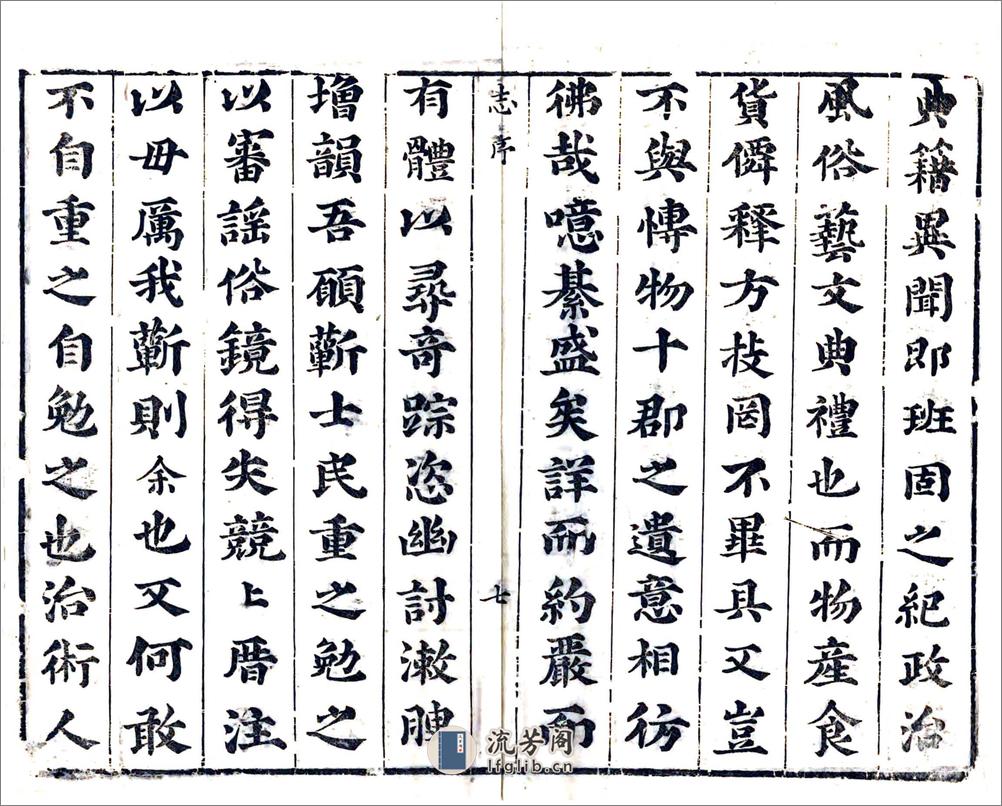 典籍異聞即班固之紀政治
風俗藝文典禮也而物產食
貨僻釋方技罔不畢具又豈
不與博物十郡之遺意相彷
彿哉噫綦盛矣詳而約嚴而
志序
七
有體以尋奇踪恣幽討漱腴
增韻吾願蘄士民重之勉之
以審謡俗鏡得失競上厝注
以毋厲我蘄則余也又何敢
不自重之自勉之也治術人
流芳阁
lfglib.cn